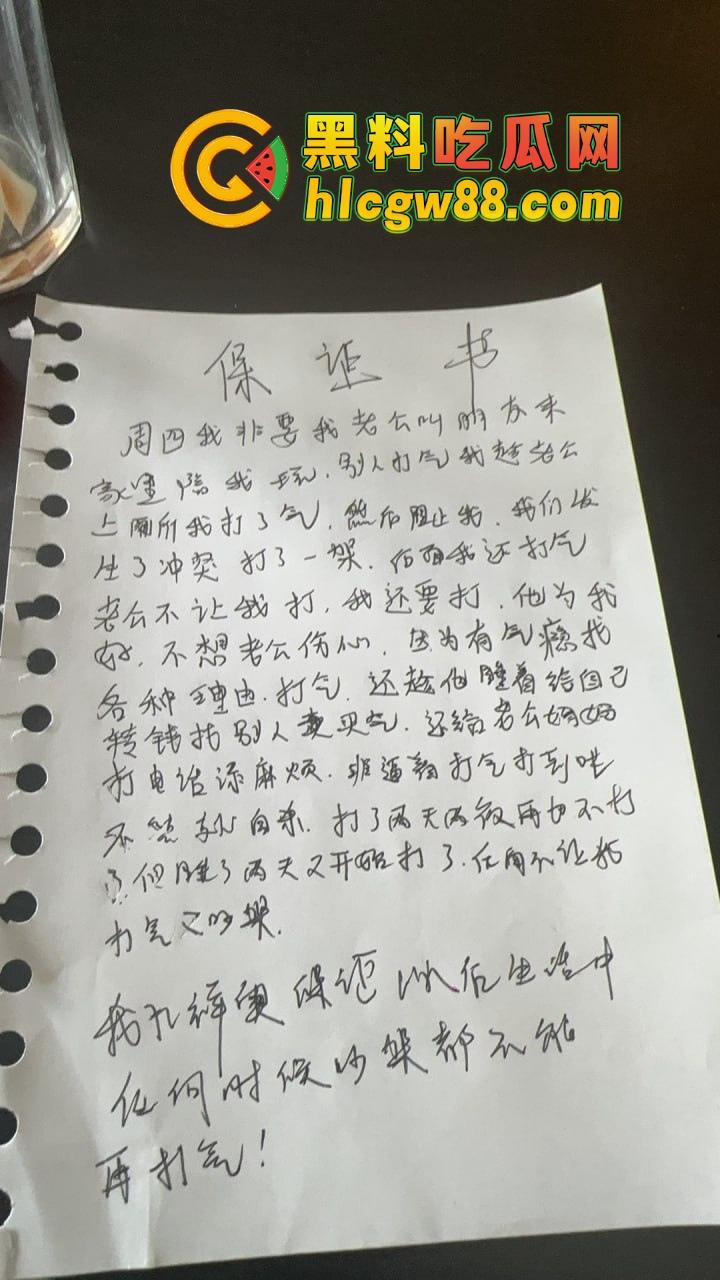 黑料吃瓜网
hlcgw88.com
保证书
周四我非要我老公叫朋友来
家里陪我玩,别人打气我趁老公
上厕所我打了气,然后阻止我,我们发
生了冲突打了一架,后面我还打气
老公不让我打,我还要打,他为我
好,不想老公伤心,因为有气瘾找
各种理由打气,还趁他睡着给自己
转钱找别人买气,还给老公妈妈
打电话添麻烦,非逼着打气打到
不然就自杀,打了两天两夜再也不打
了但睡了两天又开始打了,任何不让我
打气又吵架.
我 保证以后生活中
任何时候吵架都不能
再打气!